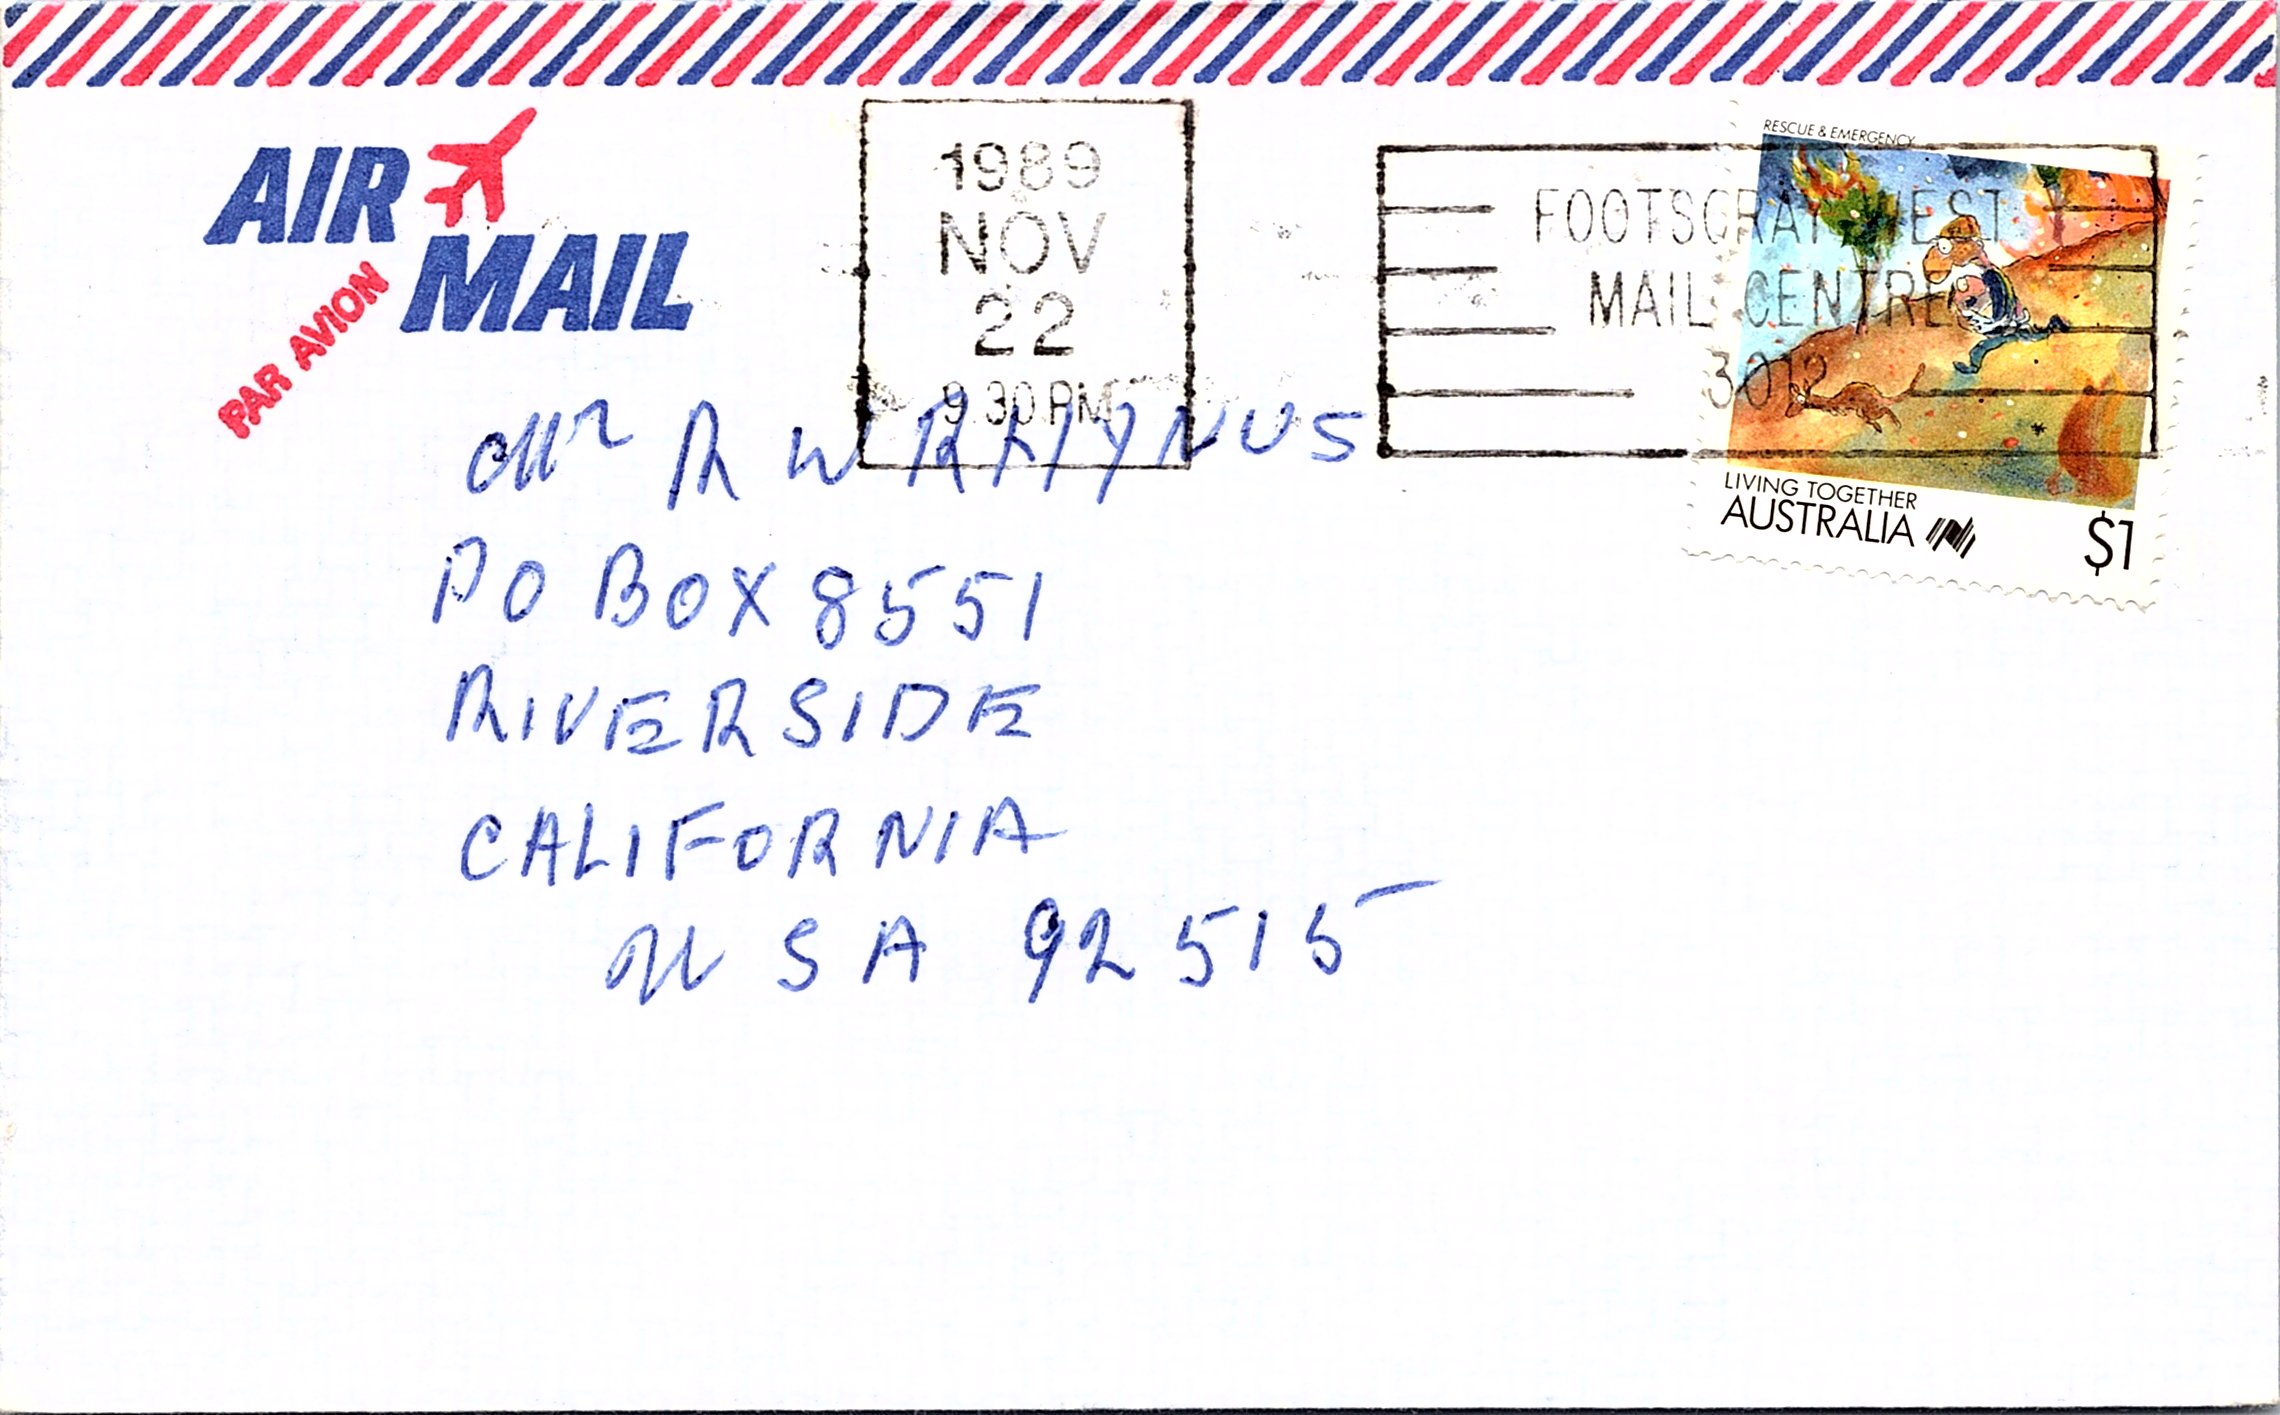 AIR
MAIL
PAR AVION
1989
NOV
22
9.30 PM
FOOTSCRAY WEST
MAIL CENTRE
3012
RESCUE & EMERGENCY
LIVING TOGETHER
AUSTRALIA
$1
Mr R W
PO BOX 8551
RIVERSIDE
CALIFORNIA
USA 92515